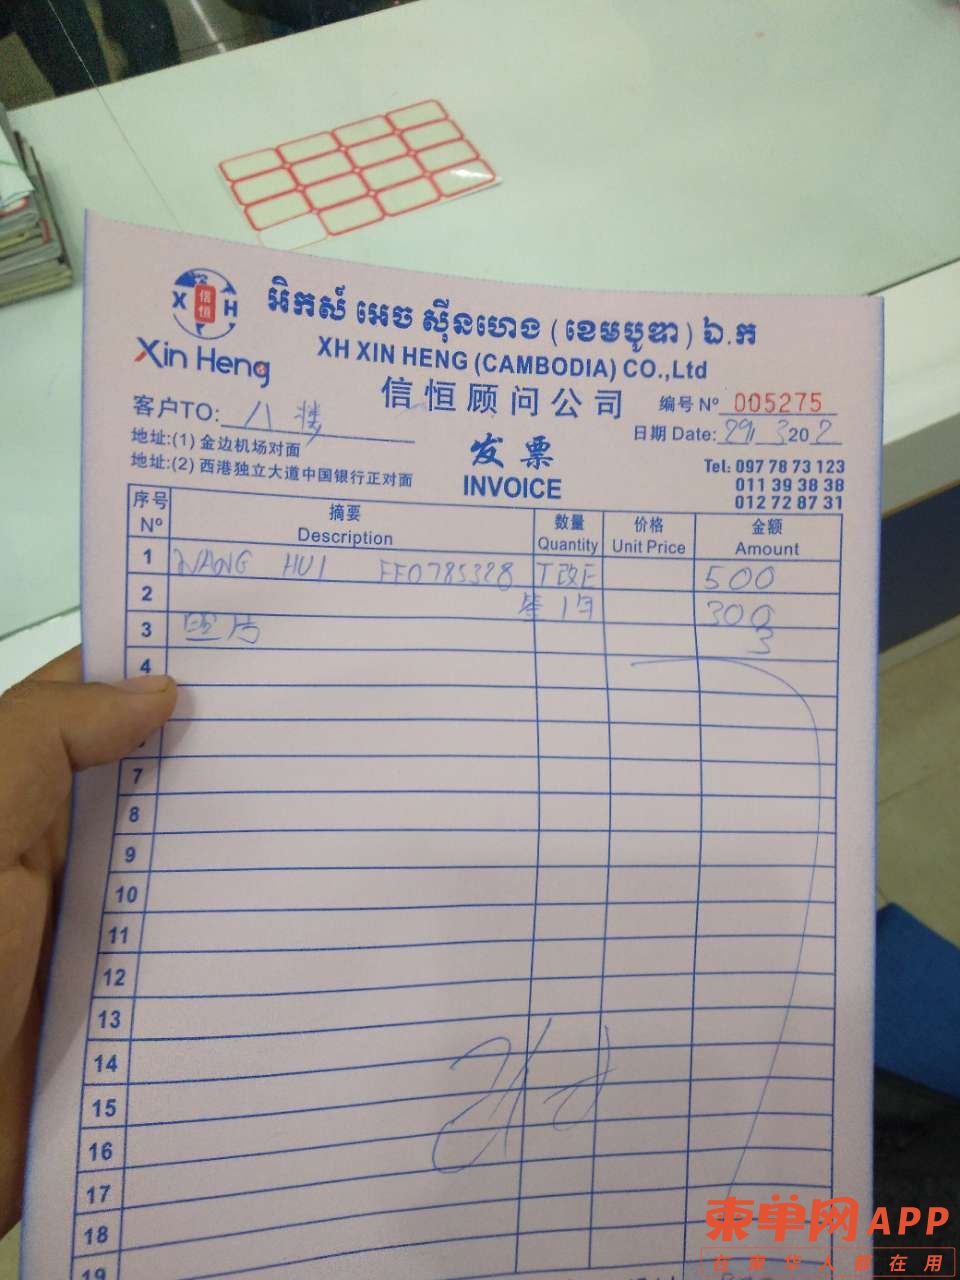 X 信恒 H
Xin Heng
អិកស៍ អេច ស៊ីនហេង (ខេមបូឌា) ឯ.ក
XH XIN HENG (CAMBODIA) CO.,Ltd
信恒顾问公司
编号 Nº 005275
客户TO: 八楼
日期 Date: 29/ 3 20 2
地址:(1) 金边机场对面
地址:(2) 西港独立大道中国银行正对面
发票
INVOICE
Tel: 097 78 73 123
011 39 38 38
012 72 87 31
序号 Nº 摘要 Description 数量 Quantity 价格 Unit Price 金额 Amount
1 WANG HUI EE0785328 T改E 500
2 1年 300
3 照片 3
4
7
8
9
10
11
12
13
14
15
16
17
18
19
柬单网APP
在柬华人都在用